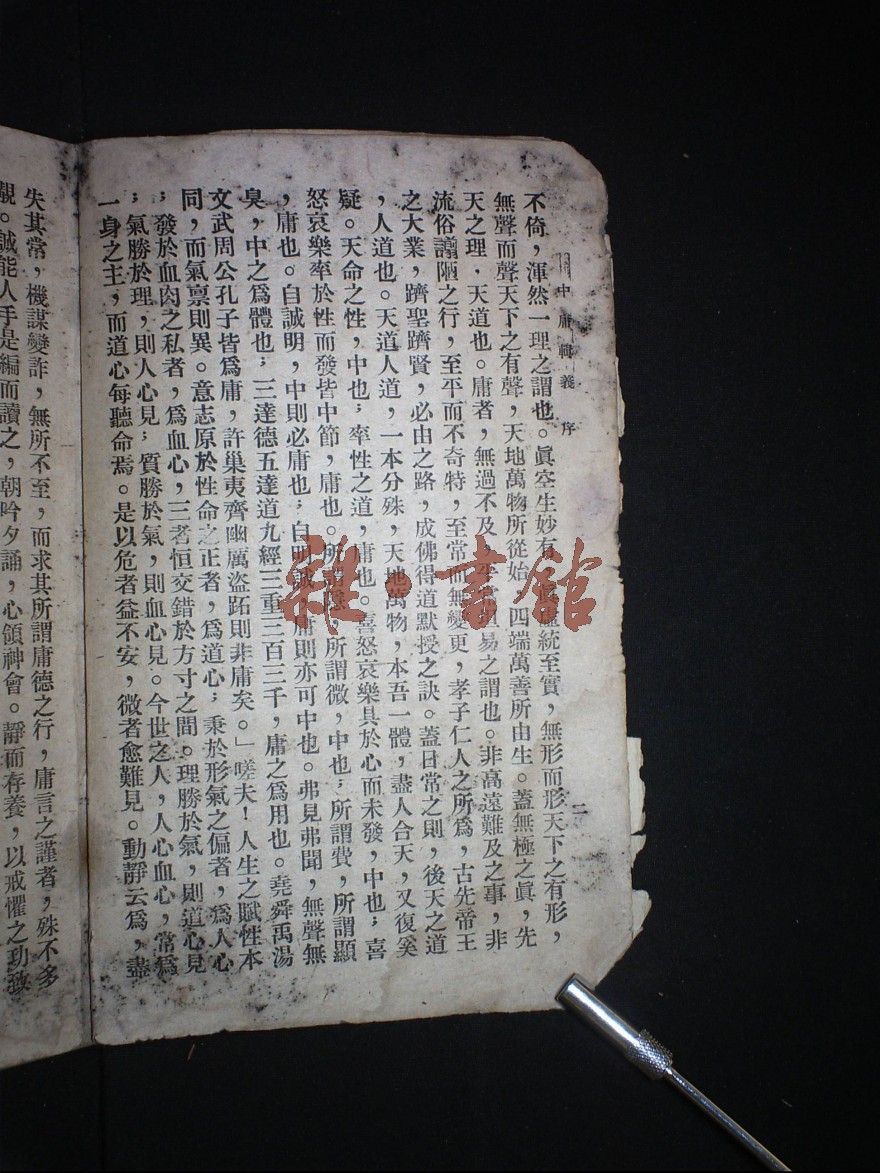 中庸輯義 序
二
不倚，渾然一理之謂也。眞空生妙有，虛統至實，無形而形天下之有形，
無聲而聲天下之有聲，天地萬物所從始，四端萬善所由生。蓋無極之眞，先
天之理，天道也。庸者，無過不及，易之謂也。非高遠難及之事，非
流俗譾陋之行，至平而不奇特，至常而無變更，孝子仁人之所爲，古先帝王
之大業，躋聖躋賢，必由之路，成佛得道默授之訣。蓋日常之則，後天之道
，人道也。天道人道，一本分殊，天地萬物，本吾一體，盡人合天，又復奚
疑。天命之性，中也；率性之道，庸也。喜怒哀樂具於心而未發，中也；喜
怒哀樂率於性而發皆中節，庸也。所謂隱，所謂微，中也；所謂費，所謂顯
，庸也。自誠明，中則必庸也；自明誠，庸則亦可中也。弗見弗聞，無聲無
臭，中之爲體也；三達德五達道九經三重三百三千，庸之爲用也。堯舜禹湯
文武周公孔子皆爲庸，許巢夷齊幽厲盜跖則非庸矣。」嗟夫！人生之賦性本
同，而氣禀則異。意志原於性命之正者，爲道心；秉於形氣之偏者，爲人心
；發於血肉之私者，爲血心，三者恒交錯於方寸之間。理勝於氣，則道心見
；氣勝於理，則人心見；質勝於氣，則血心見。今世之人，人心血心，常爲
一身之主，而道心每聽命焉。是以危者益不安，微者愈難見。動靜云爲，盡
失其常，機謀變詐，無所不至，而求其所謂庸德之行，庸言之謹者，殊不多
覯。誠能人手是編而讀之，朝吟夕誦，心領神會。靜而存養，以戒懼之功致
雜·書館